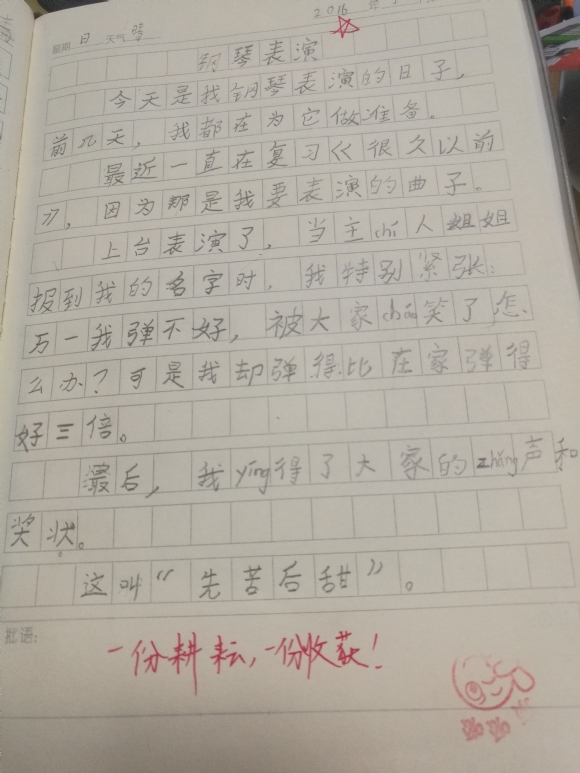 2016 年
星期 日 天气 晴
钢琴表演
今天是我钢琴表演的日子，
前几天，我都在为它做准备。
最近一直在复习《很久以前
》，因为那是我要表演的曲子。
上台表演了，当主chí人姐姐
报到我的名字时，我特别紧张：
万一我弹不好，被大家cháo笑了怎
么办？可是我却弹得比在家弹得
好三倍。
最后，我yíng得了大家的zhǎng声和
奖状。
这叫“先苦后甜”。
批语：
一份耕耘，一份收获！